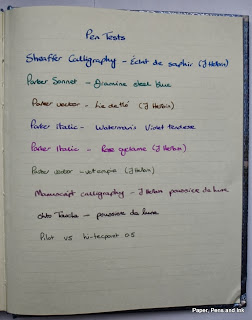 Pen Tests
Sheaffer Calligraphy - Éclat de saphir (J Herbin)
Parker Sonnet - Diamine steel blue
Parker vector - Lie de thé (J Herbin)
Parker italic - Waterman's Violet tendresse
Parker Italic - Rose cyclamen (J Herbin)
Parker vector - vert empire (J Herbin)
Manuscript calligraphy - J Herbin poussière de lune
Ohto Tasche - poussière de lune
Pilot V5 hi-tecpoint 0.5
Paper, Pens and Ink